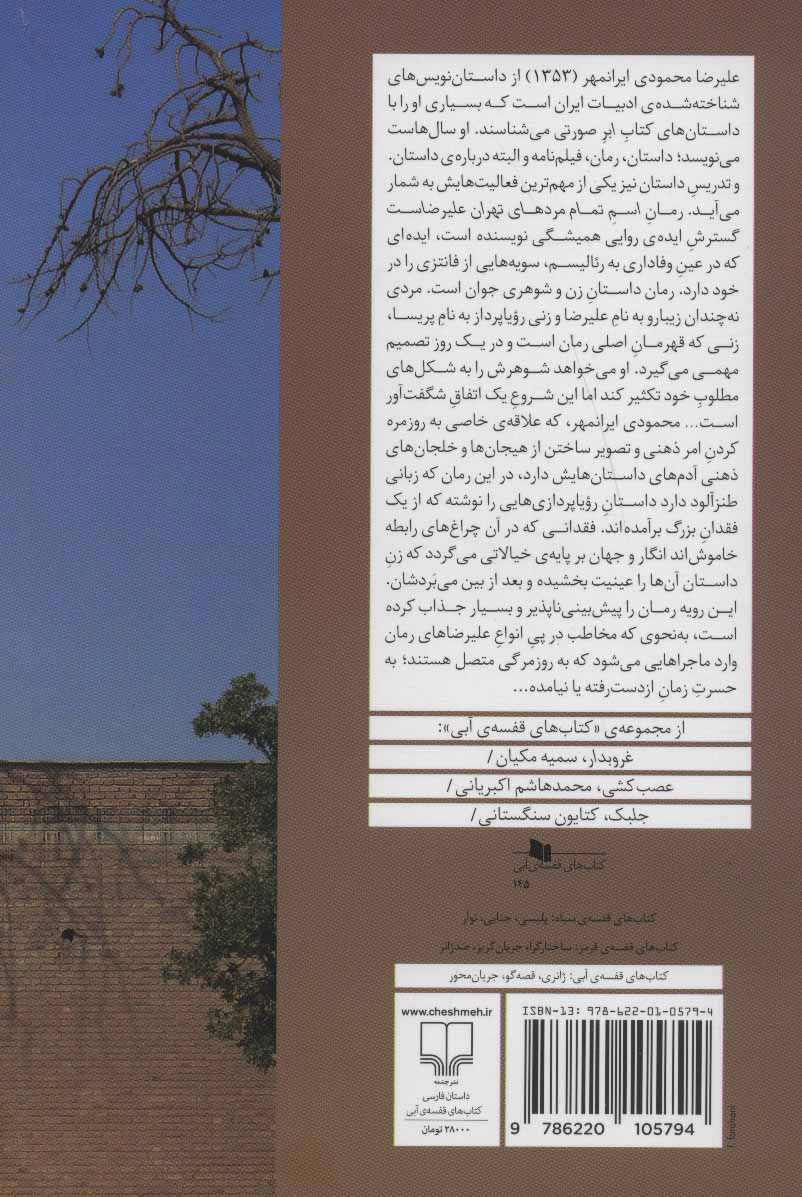 علیرضا محمودی ایرانمهر (۱۳۵۳) از داستان‌نویس‌های
شناخته‌شده‌ی ادبیات ایران است که بسیاری او را با
داستان‌های کتابِ ابرِ صورتی می‌شناسند. او سال‌هاست
می‌نویسد؛ داستان، رمان، فیلم‌نامه و البته درباره‌ی داستان.
و تدریسِ داستان نیز یکی از مهم‌ترین فعالیت‌هایش به شمار
می‌آید. رمانِ اسمِ تمام مردهای تهران علیرضاست
گسترشِ ایده‌ی روایی همیشگی نویسنده است، ایده‌ای
که در عینِ وفاداری به رئالیسم، سویه‌هایی از فانتزی را در
خود دارد. رمان داستانِ زن و شوهری جوان است. مردی
نه‌چندان زیبارو به نامِ علیرضا و زنی رؤیاپرداز به نامِ پریسا،
زنی که قهرمانِ اصلی رمان است و در یک روز تصمیم
مهمی می‌گیرد. او می‌خواهد شوهرش را به شکل‌های
مطلوبِ خود تکثیر کند اما این شروعِ یک اتفاقِ شگفت‌آور
است... محمودی ایرانمهر، که علاقه‌ی خاصی به روزمره
کردنِ امر ذهنی و تصویر ساختن از هیجان‌ها و خلجان‌های
ذهنی آدم‌های داستان‌هایش دارد، در این رمان که زبانی
طنزآلود دارد داستانِ رؤیاپردازی‌هایی را نوشته که از یک
فقدانِ بزرگ برآمده‌اند. فقدانی که در آن چراغ‌های رابطه
خاموش‌اند انگار و جهان بر پایه‌ی خیالاتی می‌گردد که زنِ
داستان آن‌ها را عینیت بخشیده و بعد از بین می‌بَردشان.
این رویه رمان را پیش‌بینی‌ناپذیر و بسیار جذاب کرده
است، به‌نحوی که مخاطب در پیِ انواعِ علیرضاهای رمان
وارد ماجراهایی می‌شود که به روزمرگی متصل هستند؛ به
حسرتِ زمانِ ازدست‌رفته یا نیامده...
از مجموعه‌ی «کتاب‌های قفسه‌ی آبی»:
غروبدار، سمیه مکیان /
عصب‌کشی، محمدهاشم اکبریانی /
جلبک، کتایون سنگستانی /
کتاب‌های قفسه‌ی آبی
۱۴۵
کتاب‌های قفسه‌ی سیاه: پلیسی، جنایی، نوآر
کتاب‌های قفسه‌ی قرمز: ساختارگرا، جریان‌گریز، ضدژانر
کتاب‌های قفسه‌ی آبی: ژانری، قصه‌گو، جریان‌محور
www.cheshmeh.ir
نشرچشمه
داستان فارسی
کتاب‌های قفسه‌ی آبی
۲۸۰۰۰ تومان
ISBN-13: 978-622-01-0579-4
9 786220 105794
T. farahani